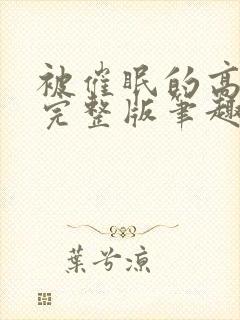 被催眠的高
完整版笔趣
葉兮凉